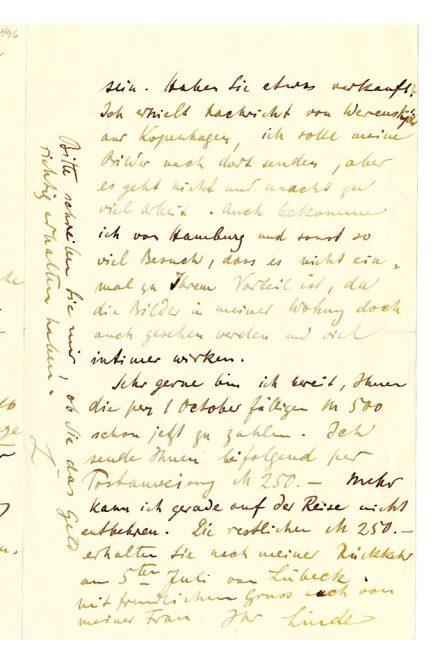 sein. Haben Sie etwas verkauft?
Ich erhielt Nachricht von Werenskjold
aus Kopenhagen, ich solle meine
Bilder nach dort senden, aber
es geht nicht und macht zu
viel Arbeit. Auch bekomme
ich von Hamburg und sonst so
viel Besuch, dass es nicht ein-
mal zu Ihrem Vorteil ist, da
die Bilder in meiner Wohnung doch
auch gesehen werden und viel
intimer wirken.
Sehr gerne bin ich bereit, Ihnen
die per 1 October fälligen M 500
schon jetzt zu zahlen. Ich
sende Ihnen beifolgend per
Postanweisung M 250.— Mehr
kann ich gerade auf der Reise nicht
entbehren. Die restlichen M 250.—
erhalten Sie nach meiner Rückkehr
am 5ten Juli von Lübeck.
Mit freundlichem Gruss auch von
meiner Frau. Ihr Linde
Bitte schreiben Sie mir, ob Sie das Geld
richtig erhalten haben.
L